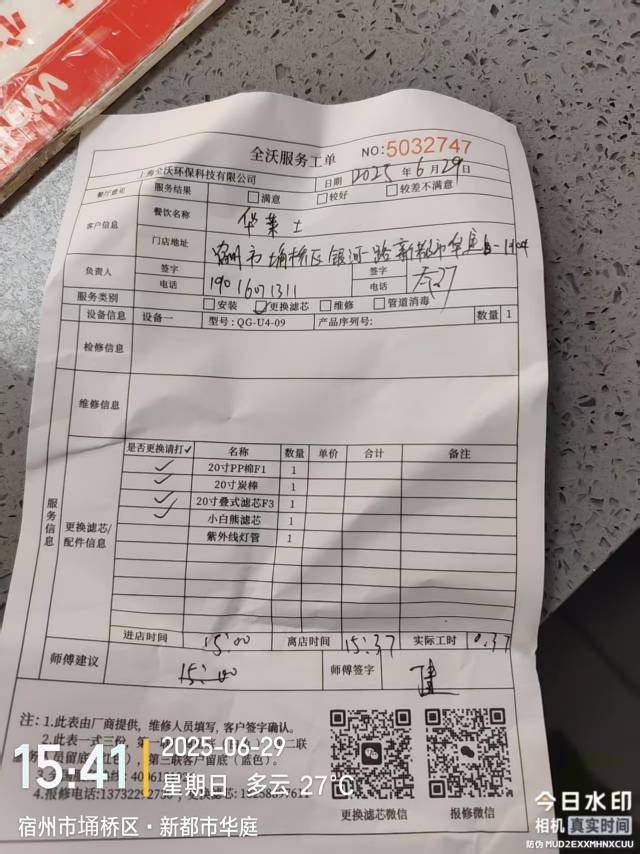 全沃服务工单 NO:5032747
上海全沃环保科技有限公司 日期 2025 年 6 月 29 日
餐厅意见 服务结果 □满意 □较好 □较差不满意
客户信息 餐饮名称 华莱士
门店地址 宿州市埇桥区银河一路新都市华庭
负责人 签字 签字
电话 19016071311 电话
服务类别 □安装 ☑更换滤芯 □维修 □管道消毒
设备信息 设备一 型号: QG-U4-09 产品序列号: 数量 1
检修信息
维修信息
服务信息
更换滤芯/配件信息
是否更换请打✓ 名称 数量 单价 合计 备注
✓ 20寸PP棉F1 1
✓ 20寸炭棒 1
✓ 20寸叠式滤芯F3 1
✓ 小白熊滤芯 1
紫外线灯管 1
进店时间 15:00 离店时间 15:37 实际工时 0.37
师傅建议 15:00 师傅签字
注: 1.此表由厂商提供，维修人员填写，客户签字确认。
2.此表一式三份，
第三联客户留底（蓝色）。
4.报修电话:
更换滤芯微信 报修微信
15:41 2025-06-29
星期日·多云 27℃
宿州市埇桥区·新都市华庭
今日水印
相机 真实时间
防伪 MUD2EXXMHNXCUU